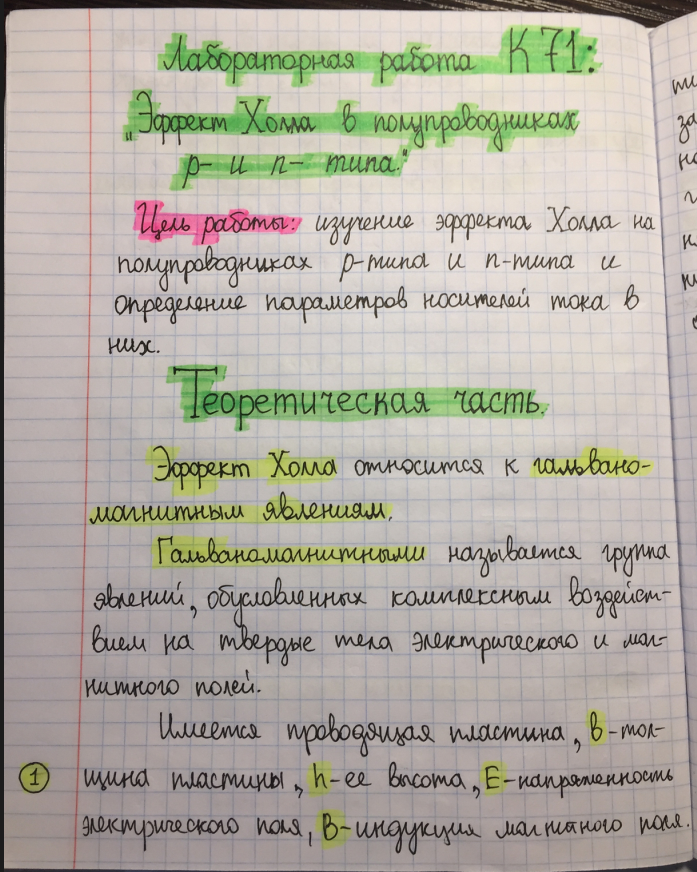 Лабораторная работа К 71:
„Эффект Холла в полупроводниках
р- и n- типа."
Цель работы: изучение эффекта Холла на
полупроводниках р-типа и n-типа и
определение параметров носителей тока в
них.
Теоретическая часть.
Эффект Холла относится к гальвано-
магнитным явлениям.
Гальваномагнитными называется группа
явлений, обусловленных комплексным воздейст-
вием на твердые тела электрического и маг-
нитного полей.
Имеется проводящая пластина, в-тол-
1 щина пластины, h-ее высота, Е-напряженность
электрического поля, В-индукция магнитного поля.